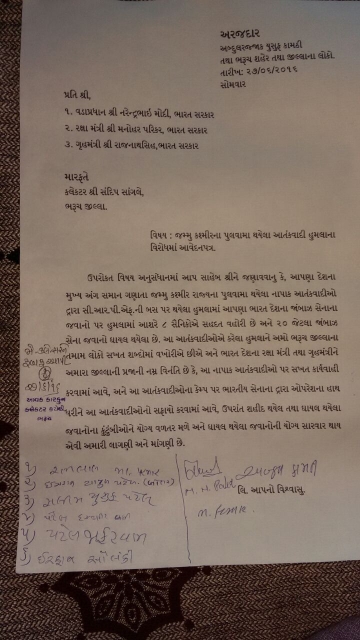 અરજદાર
અબ્દુલરજ્જાક યુસુફ કામઠી
તથા ભરૂચ શહેર તથા જીલ્લાના લોકો.
તારીખ: ૨૭/૦૬/૨૦૧૬
સોમવાર
પ્રતિ શ્રી,
૧. વડાપ્રધાન શ્રી નરેન્દ્રભાઇ મોદી, ભારત સરકાર
૨. રક્ષા મંત્રી શ્રી મનોહર પરિકર, ભારત સરકાર
૩. ગૃહમંત્રી શ્રી રાજનાથસિંહ,ભારત સરકાર
મારફતે
કલેક્ટર શ્રી સંદિપ સાંગલે,
ભરૂચ જીલ્લા.
વિષય : જમ્મુ કશ્મીરના પુલવામા થયેલા આતંકવાદી હુમલાના
વિરોધમાં આવેદનપત્ર.
ઉપરોક્ત વિષય અનુસંધાનમાં આપ સાહેબ શ્રીને જણાવવાનુ કે, આપણા દેશના
મુખ્ય અંગ સમાન ગણાતા જમ્મુ કશ્મીર રાજ્યના પુલવામા થયેલા નાપાક આતંકવાદીઓ
દ્વારા સી.આર.પી.એફ.ની બસ પર થયેલા હુમલામાં આપણા ભારત દેશના જાંબાઝ સેનાના
જવાનો પર હુમલામાં આશરે ૮ સૈનિકોએ સહાદત વહોરી છે અને ૨૦ જેટલા જાંબાઝ
સેના જવાનો ઘાયલ થયેલા છે. આ આતંકવાદીઓએ કરેલા હુમલાને અમો ભરૂચ જીલ્લાના
તમામ લોકો સખત શબ્દોમાં વખોડીએ છીએ અને ભારત દેશના રક્ષા મંત્રી તથા ગૃહમંત્રીને
અમારા જીલ્લાની પ્રજાની નમ્ર વિનંતિ છે કે, આ નાપાક આતંકવાદીઓ પર સખત કાર્યવાહી
કરવામાં આવે, અને આ આતંકવાદીઓના કેમ્પ પર ભારતીય સેનાના દ્વારા ઓપરેશન હાથ
ધરીને આ આતંકવાદીઓનો સફાયો કરવામાં આવે, ઉપરાંત શહીદ થયેલ તથા ઘાયલ થયેલ
જવાનોના કુટુંબીઓને યોગ્ય વળતર મળે અને ઘાયલ થયેલા જવાનોની યોગ્ય સારવાર થાય
એવી અમારી લાગણી અને માંગણી છે.
અવાક કારકુન
કલેક્ટર કચેરી,
ભરૂચ
લિ. આપનો વિશ્વાસુ,